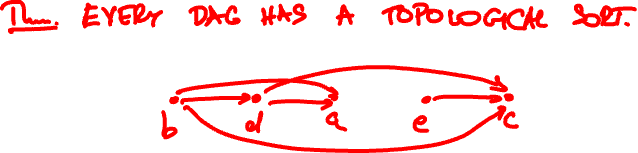 Thm. EVERY DAG HAS A TOPOLOGICAL SORT.
b d a e c